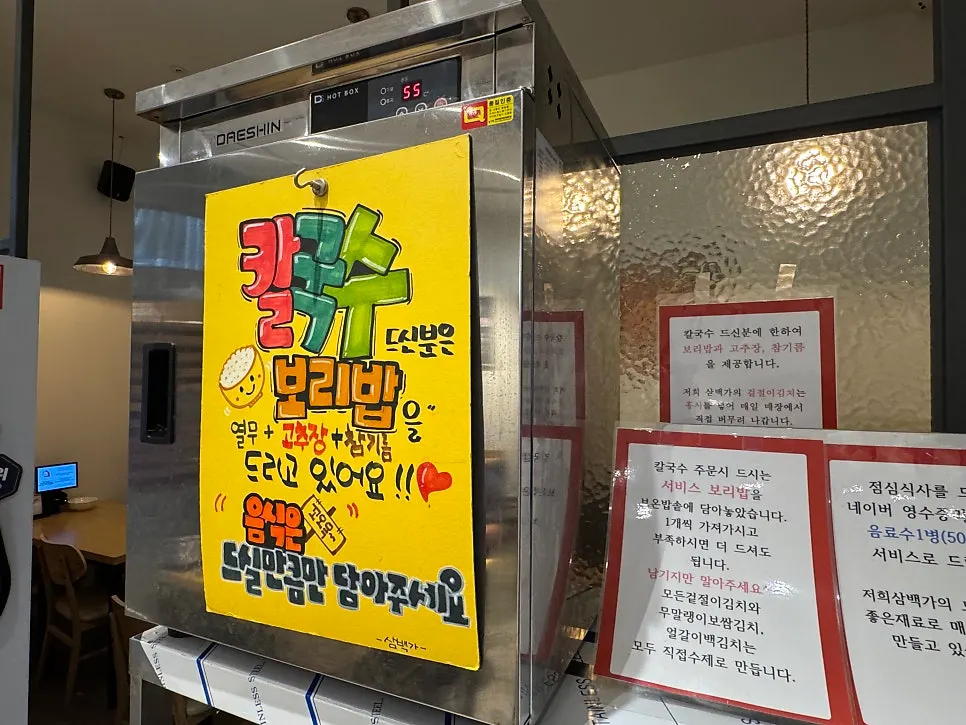 HOT BOX
55
DAESHIN
품질인증
칼국수
드신분은
보리밥을"
열무 + 고추장 + 참기름
드리고 있어요!!
음식은 꼬오옥~
드실만큼만 담아주세요
-삼백가-
칼국수 드신분에 한하여
보리밥과 고추장, 참기름
을 제공합니다.
저희 삼백가의 겉절이김치는
홍시를 넣어 매일 매장에서
직접 버무려 나갑니다.
칼국수 주문시 드시는
서비스 보리밥을
보온밥솥에 담아놓았습니다.
1개씩 가져가시고
부족하시면 더 드셔도
됩니다.
남기지만 말아주세요
모든겉절이김치와
무말랭이보쌈김치,
얼갈이백김치는
모두 직접수제로 만듭니다.
점심식사를
네이버 영수증
음료수1병(50
서비스로
저희삼백가의
좋은재료로
만들고